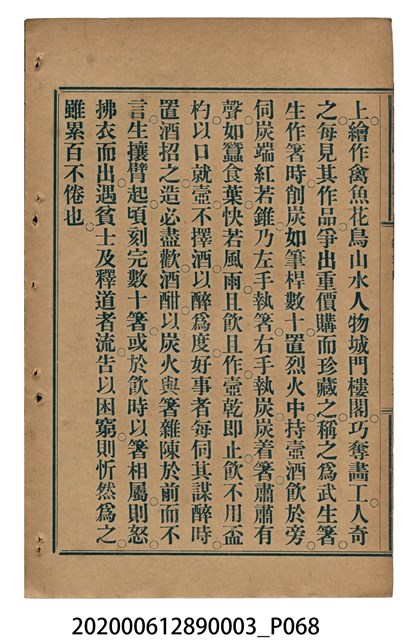 上。繪作禽魚花鳥山水人物城門樓閣。巧奪畵工。人奇
之。每見其作品爭出重價購而珍藏之。稱之爲武生箸。
生作箸時。削炭如筆桿數十。置烈火中。持壺酒飮於旁。
伺炭端紅若錐。乃左手執箸右手執炭。炭着箸肅肅有
聲。如蠶食葉。快若風雨。且飮且作。壺乾卽止。飮不用盃
杓。以口就壺。不擇酒。以醉爲度。好事者每伺其謀醉時。
置酒招之。造必盡歡。酒酣以炭火與箸雜陳於前而不
言。生攘臂起。頃刻完數十箸。或於飮時以箸相屬則怒
拂衣而出。遇貧士及釋道者流告以困窮。則忻然爲之。
雖累百不倦也。
202000612890003_P068